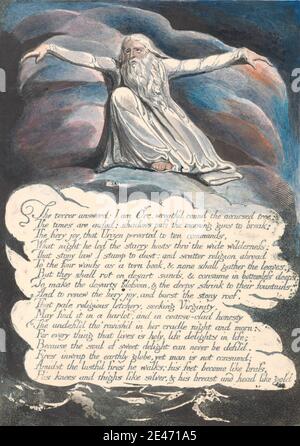 The terror answerd: I am Orc, wreath'd round the accursed tree:
The times are ended; shadows pass the morning gins to break;
The fiery joy, that Urizen perverted to ten commands,
What night he led the starry hosts thro' the wide wilderness:
That stony law I stamp to dust: and scatter religion abroad
To the four winds as a torn book, & none shall gather the leaves;
But they shall rot on desart sands, & consume in bottomless deeps;
To make the desarts blossom, & the deeps shrink to their fountains,
And to renew the fiery joy, and burst the stony roof.
That pale religious letchery, seeking Virginity,
May find it in a harlot, and in coarse-clad honesty
The undefil'd tho' ravish'd in her cradle night and morn:
For every thing that lives is holy, life delights in life;
Because the soul of sweet delight can never be defil'd.
Fires inwrap the earthly globe, yet man is not consumd;
Amidst the lustful fires he walks: his feet become like brass,
His knees and thighs like silver, & his breast and head like gold.
alamy
2E471A5